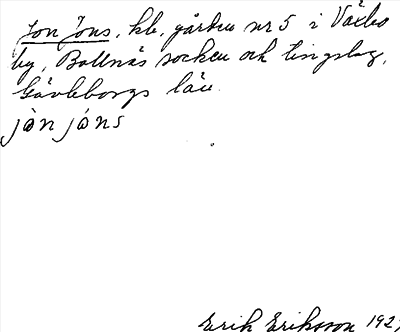 Jon Jons, hb, gården nr 5 i Växbo
by, Bollnäs socken och tingslag,
Gävleborgs län.
jòn jóns
Erik Eriksson 192